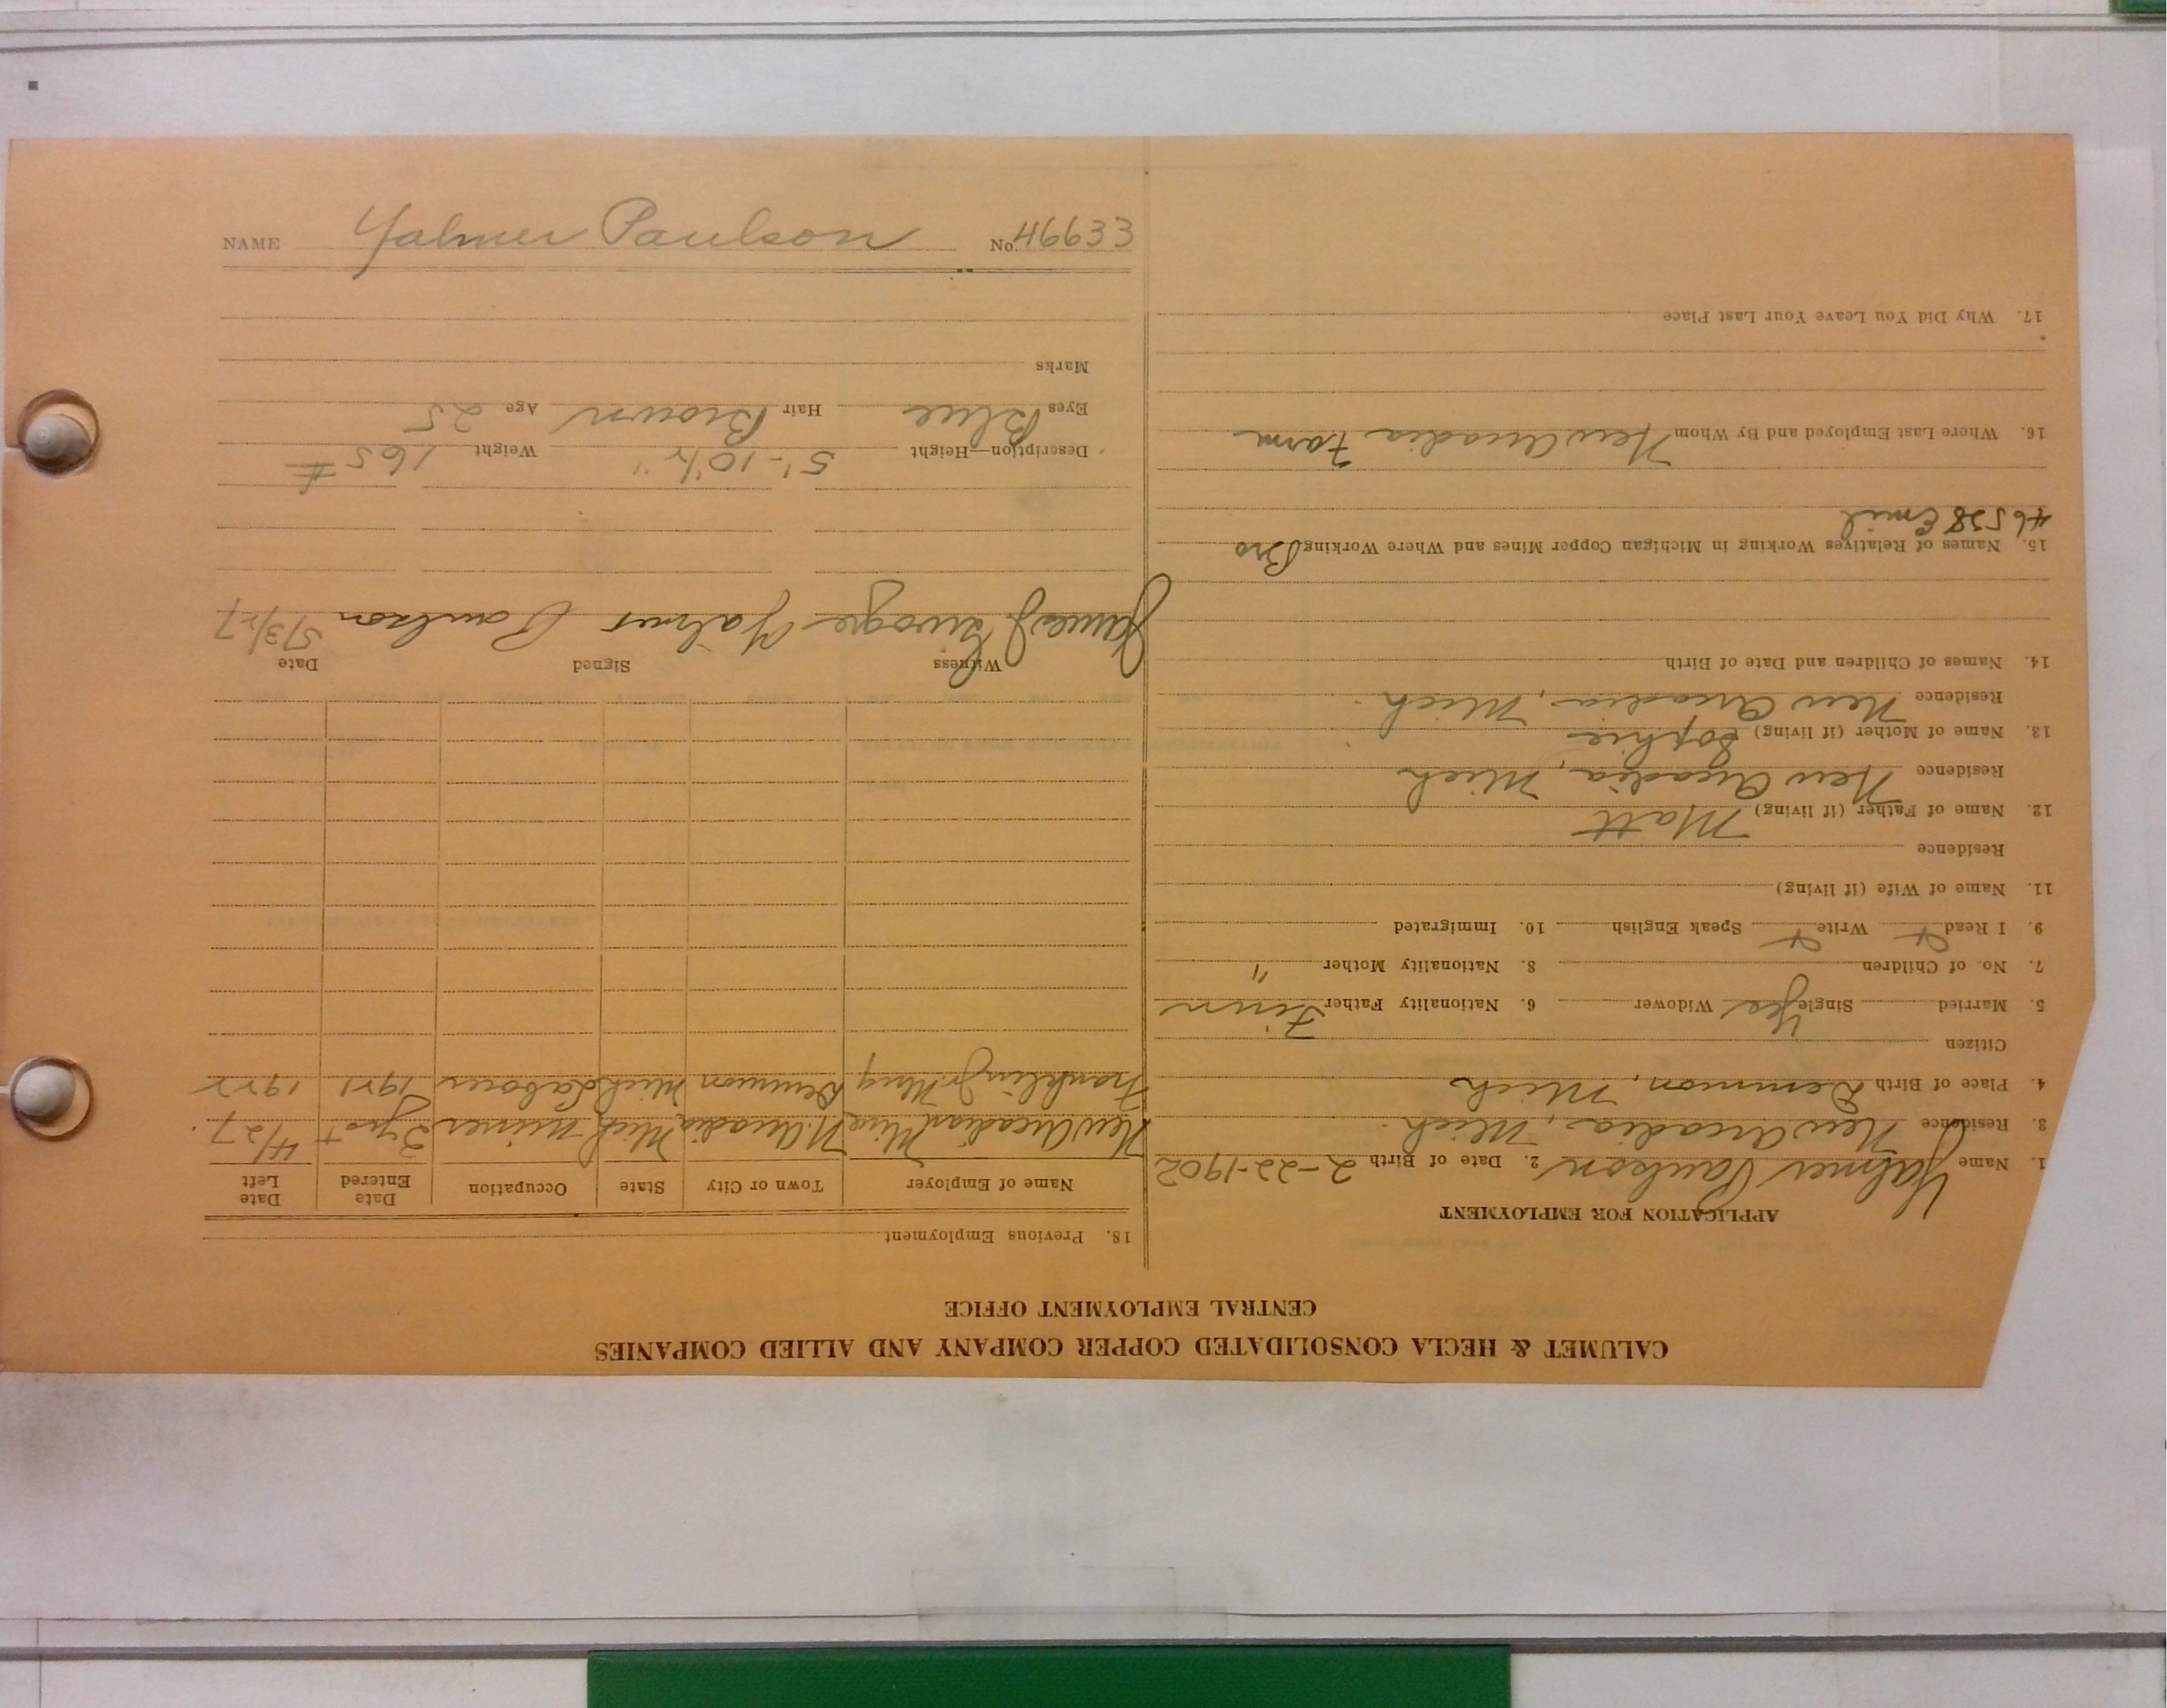 CALUMET & HECLA CONSOLIDATED COPPER COMPANY AND ALLIED COMPANIES
CENTRAL EMPLOYMENT OFFICE
APPLICATION FOR EMPLOYMENT
1. Name Yalmer Paulson 2. Date of Birth 2-22-1902
3. Residence New Arcadia, Mich.
4. Place of Birth Demmon, Mich
Citizen
5. Married Single Yes Widower 6. Nationality Father Finn
7. No. of Children 8. Nationality Mother "
9. I Read Write Speak English 10. Immigrated
11. Name of Wife (if living)
Residence
12. Name of Father (if living) Matt
Residence New Arcadia, Mich
13. Name of Mother (if living) Sophie
Residence New Arcadia, Mich.
14. Names of Children and Date of Birth
15. Names of Relatives Working in Michigan Copper Mines and Where Working Bro
46538 Emil
16. Where Last Employed and By Whom New Arcadia Farm
17. Why Did You Leave Your Last Place
18. Previous Employment
Name of Employer Town or City State Occupation Date Entered Date Left
New Arcadian Mine N. Arcadia Mich miner 4/27
Franklin Jr Mng Demmon Mich Laborer 1921 1922
Witness Signed Date
James Yalmer Paulson 5/3/27
Description—Height 5'-10½" Weight 165 #
Eyes Blue Hair Brown Age 25
Marks
NAME Yalmer Paulson No. 46633